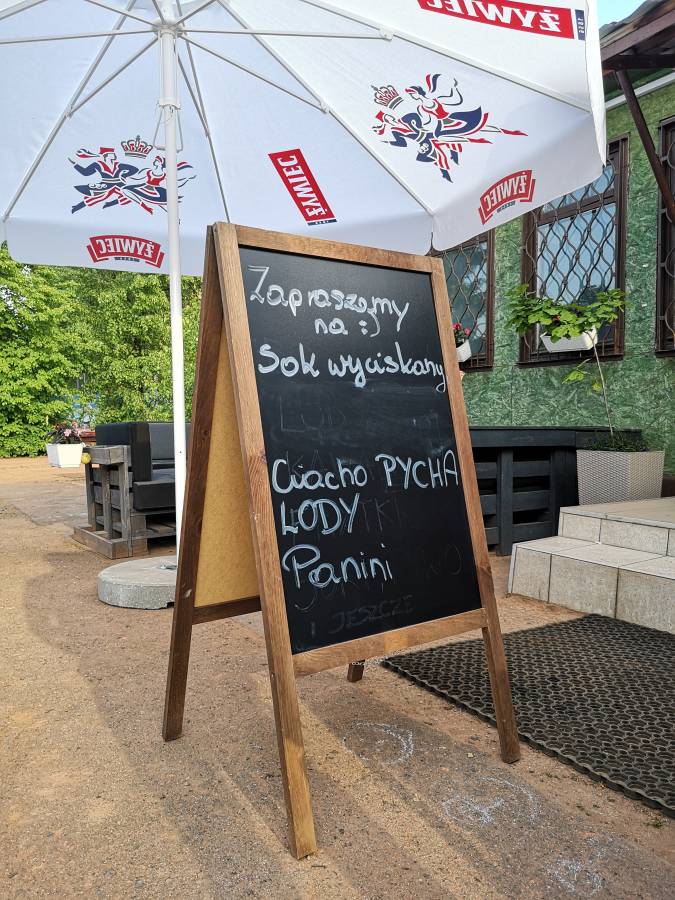 ŻYWIEC
1856
ŻYWIEC
ŻYWIEC
ŻYWIEC
Zapraszamy
na :)
Sok wyciskany
Ciacho PYCHA
LODY
Panini
I JESZCZE